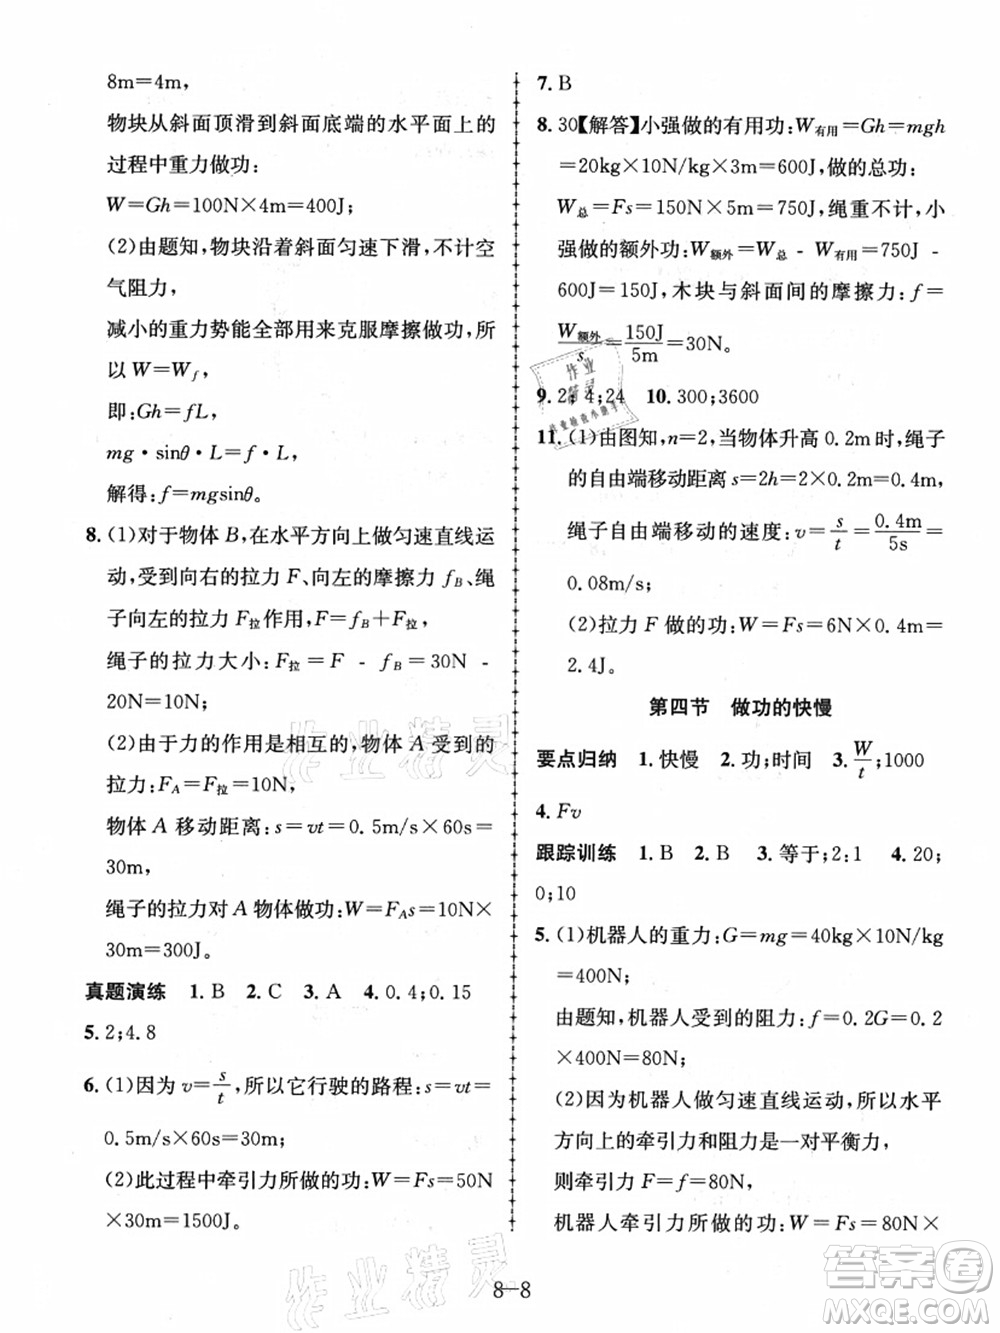 8m=4m,
物块从斜面顶滑到斜面底端的水平面上的
过程中重力做功:
W=Gh=100N×4m=400J;
(2)由题知,物块沿着斜面匀速下滑,不计空
气阻力,
减小的重力势能全部用来克服摩擦做功,所
以 W=Wf,
即:Gh=fL,
mg·sinθ·L=f·L,
解得:f=mgsinθ。
8.(1)对于物体 B,在水平方向上做匀速直线运
动,受到向右的拉力 F、向左的摩擦力 fB、绳
子向左的拉力 F拉作用,F=fB+F拉,
绳子的拉力大小:F拉=F - fB=30N -
20N=10N;
(2)由于力的作用是相互的,物体 A 受到的
拉力:FA=F拉=10N,
物体 A 移动距离:s=vt=0.5m/s×60s=
30m,
绳子的拉力对 A 物体做功:W=FAs=10N×
30m=300J。
真题演练 1.B 2.C 3.A 4.0.4;0.15
5.2;4.8
6.(1)因为 v=s/t,所以它行驶的路程:s=vt=
0.5m/s×60s=30m;
(2)此过程中牵引力所做的功:W=Fs=50N
×30m=1500J。
7.B
8.30【解答】小强做的有用功:W有用=Gh=mgh
=20kg×10N/kg×3m=600J,做的总功:
W总=Fs=150N×5m=750J,绳重不计,小
强做的额外功:W额外=W总 - W有用=750J -
600J=150J,木块与斜面间的摩擦力:f=
W额外/s=150J/5m=30N。
9.2;4;24 10.300;3600
11.(1)由图知,n=2,当物体升高 0.2m时,绳子
的自由端移动距离 s=2h=2×0.2m=0.4m,
绳子自由端移动的速度:v=s/t=0.4m/5s=
0.08m/s;
(2)拉力 F 做的功:W=Fs=6N×0.4m=
2.4J。
第四节 做功的快慢
要点归纳 1.快慢 2.功;时间 3.W/t;1000
4.Fv
跟踪训练 1.B 2.B 3.等于;2:1 4.20;
0;10
5.(1)机器人的重力:G=mg=40kg×10N/kg
=400N;
由题知,机器人受到的阻力:f=0.2G=0.2
×400N=80N;
(2)因为机器人做匀速直线运动,所以水平
方向上的牵引力和阻力是一对平衡力,
则牵引力 F=f=80N,
机器人牵引力做的功:W=Fs=80N×
8-8
作业精灵
作业精灵
作业精灵
答案圈
MXQE.COM